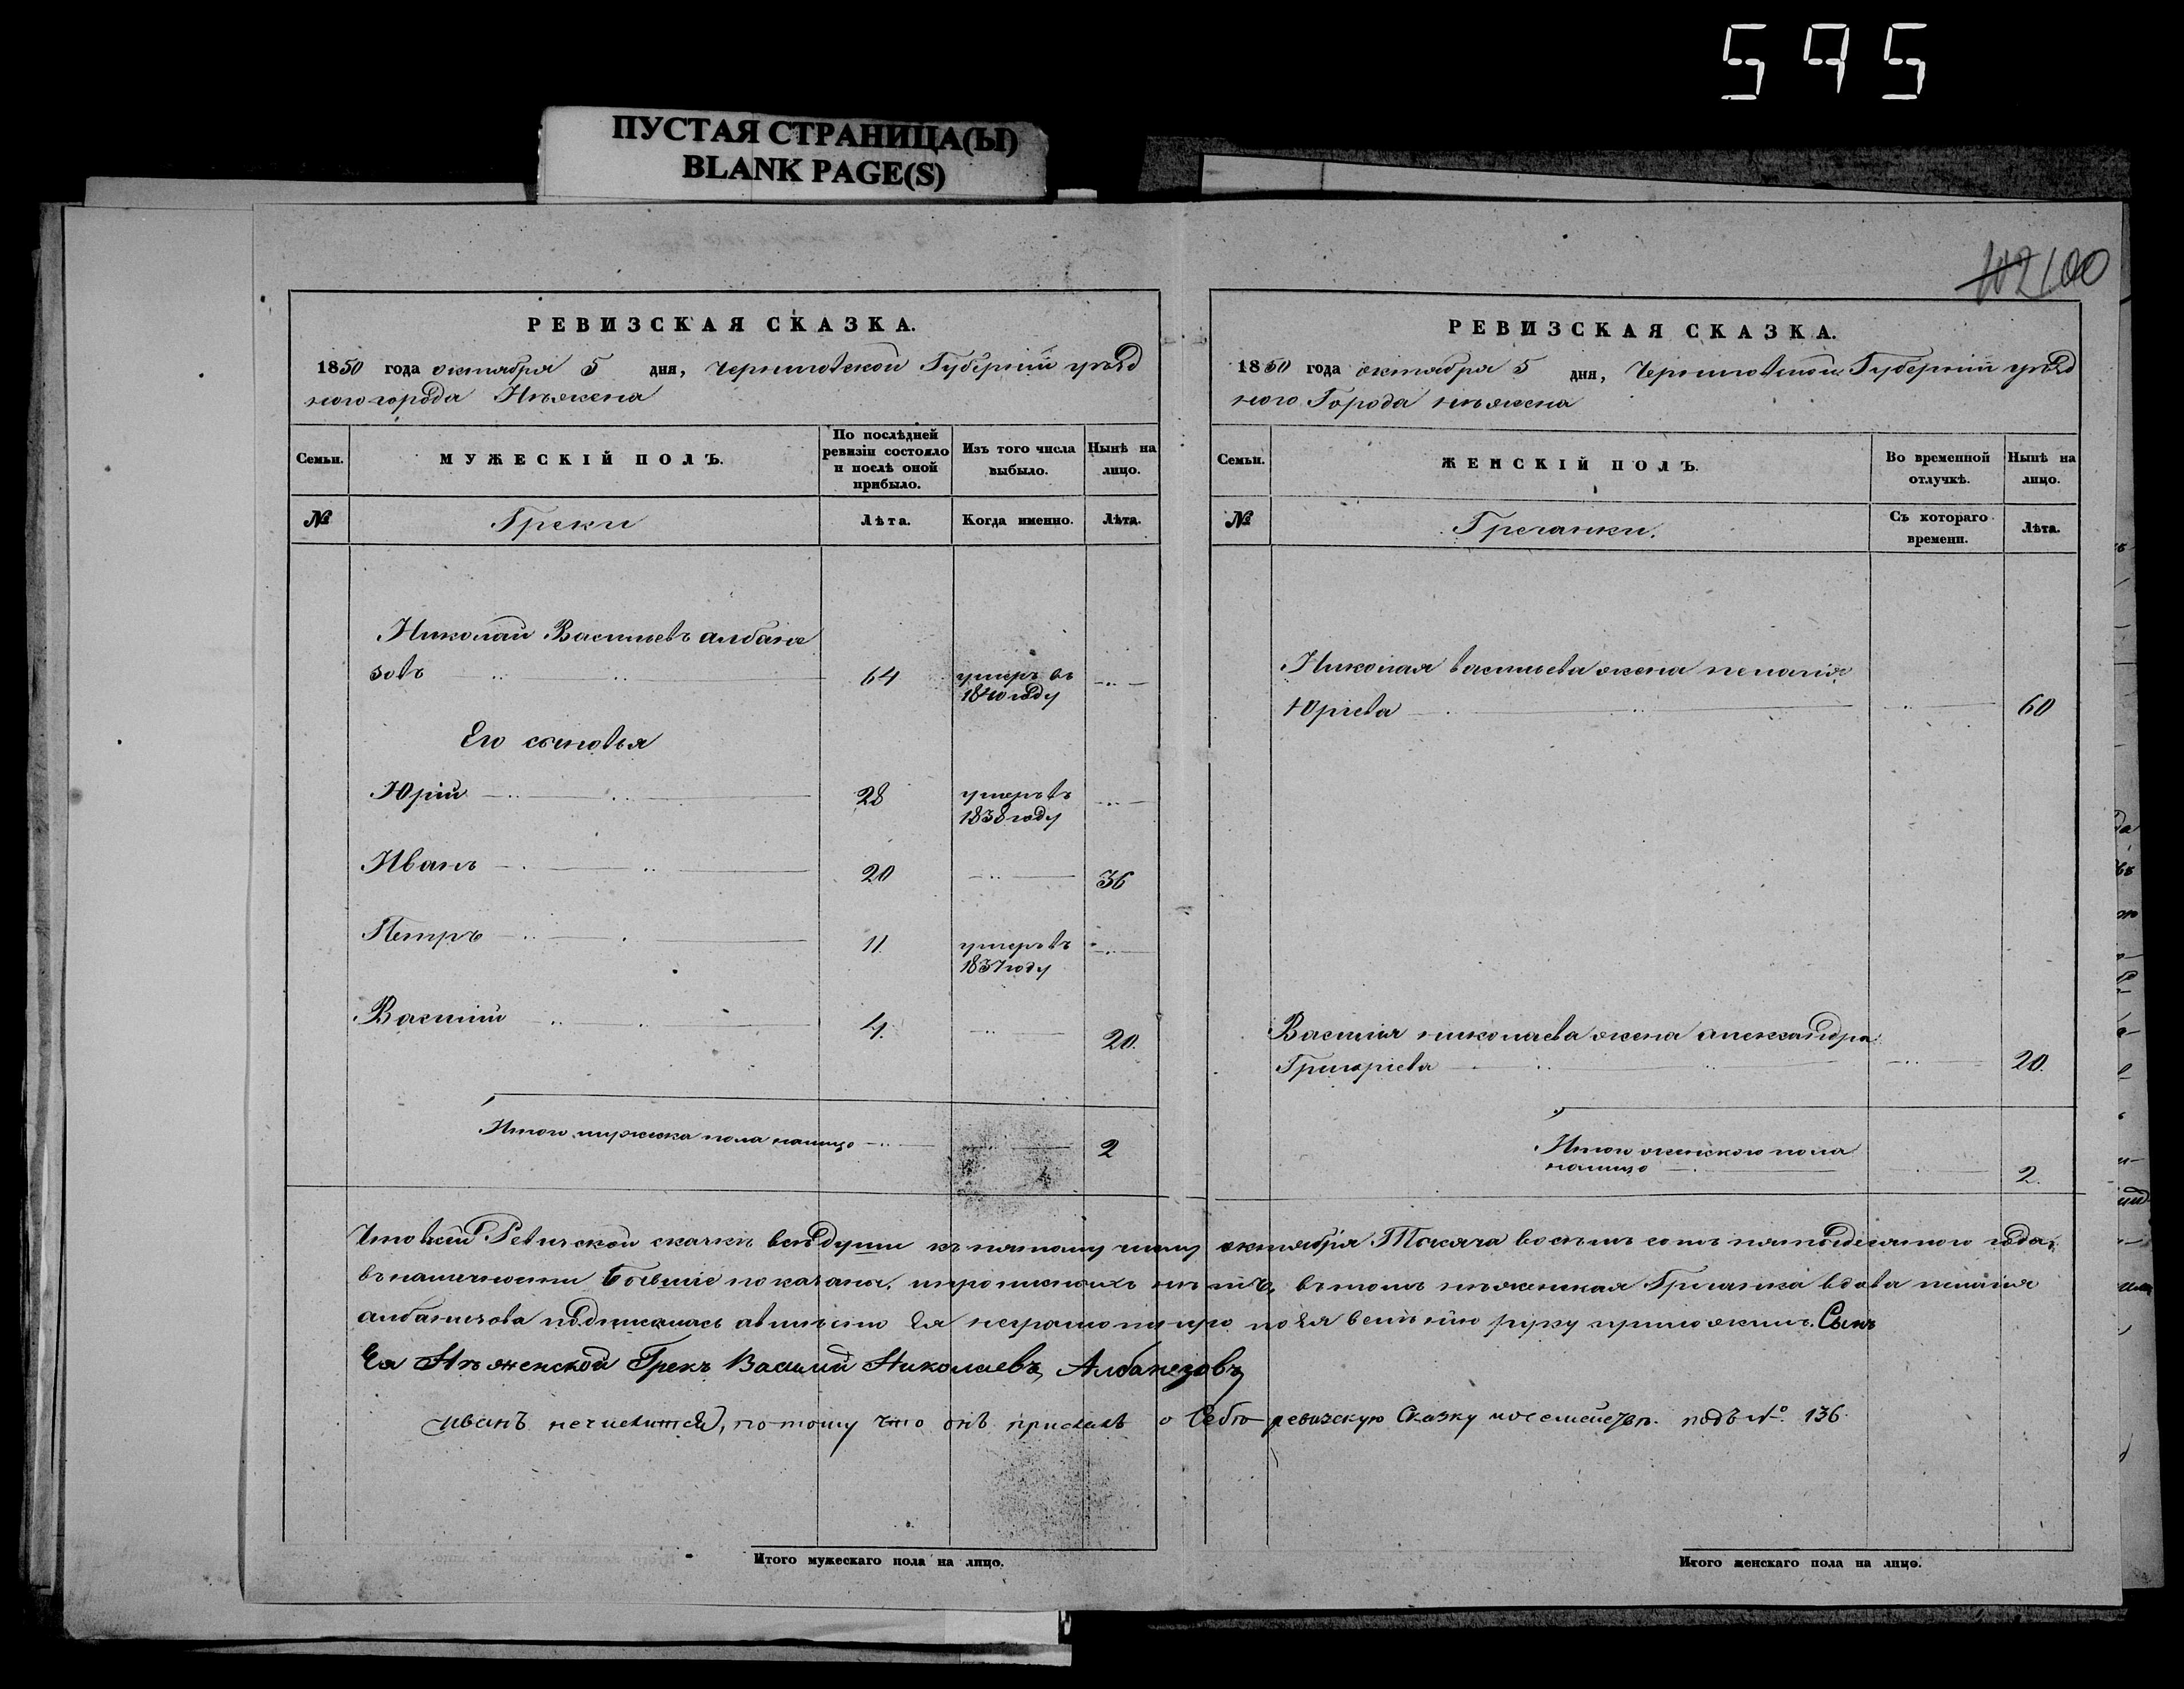 595
ПУСТАЯ СТРАНИЦА(Ы)
BLANK PAGE(S)
102 100
РЕВИЗСКАЯ СКАЗКА.
1850 года октября 5 дня, Черниговской Губерніи уѣзд
ного города Нѣжена
Семьи.
МУЖЕСКІЙ ПОЛЪ.
По послѣдней ревизіи состояло и послѣ оной прибыло.
Изъ того числа выбыло.
Нынѣ на лицо.
№
Греки
Лѣта.
Когда именно.
Лѣта.
Николай Васильевъ албане
зовъ 64 умеръ въ
1840 году
Его сыновья
Юрій 28 умеръ въ
1838 году
Иванъ 20 36
Петръ 11 умеръ въ
1837 году
Василий 4. 20.
Итого мужеска пола налицо 2
РЕВИЗСКАЯ СКАЗКА.
1850 года октября 5 дня, Черниговской Губерніи уѣзд
ного Города нѣжена
Семьи.
ЖЕНСКІЙ ПОЛЪ.
Во временной отлучкѣ.
Нынѣ на лицо.
№
Гречанки.
Съ котораго времени.
Лѣта.
Николая васильева жена
Юріева 60
Василія николаева жена александра
Григоріева 20.
Итого женского пола
налицо 2.
Что в сей Ревизской сказки всѣ души къ пятому числу октября Тысяча восемь сотъ пятьдесятого года,
въ наличности бывшіе показаны, и прописныхъ нѣтъ, въ томъ нѣженская Гречанка вдова
албанезова подписалась а вместо Ея неграмотную по Ея велѣнію руку приложилъ. Сынъ
Ея Нѣженской Грекъ Василий Николаевъ Албанезовъ
Иванъ нечислится, потому что онъ о Себѣ ревизскую Сказку подъ № 136.
Итого мужескаго пола на лицо.
Итого женскаго пола на лицо.